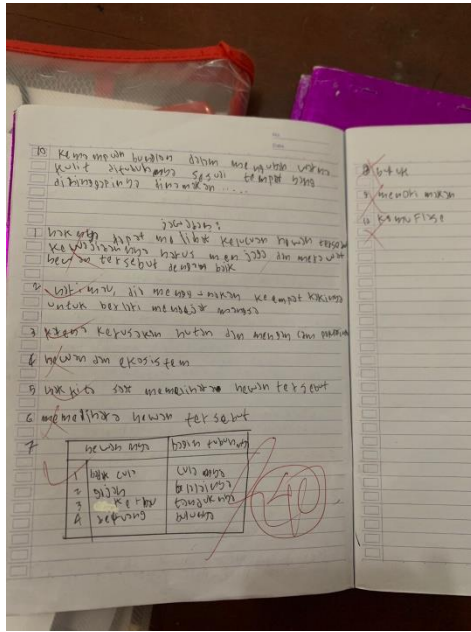 10 Kemampuan bunglon dalam mengubah warna
kulit ditubuhnya sesuai tempat yang
disinggahinya dinamakan .....
jawaban:
1 haknya dapat melihat kelucuan hewan tersebut
kewajibannya harus menjaga dan merawat
hewan tersebut dengan baik
2 harimau, dia menggunakan keempat kakinya
untuk berlari mengejar mangsa
3 karena kerusakan hutan dan
4 hewan dan ekosistem
5 hak kita saat memelihara hewan tersebut
6 memelihara hewan tersebut
7 hewannya bagian tubuhnya
1 badak cula culanya
2 gajah
3 kerbau tanduknya
4 bulunya
8
9 mencari makan
10 Kamuflase
40